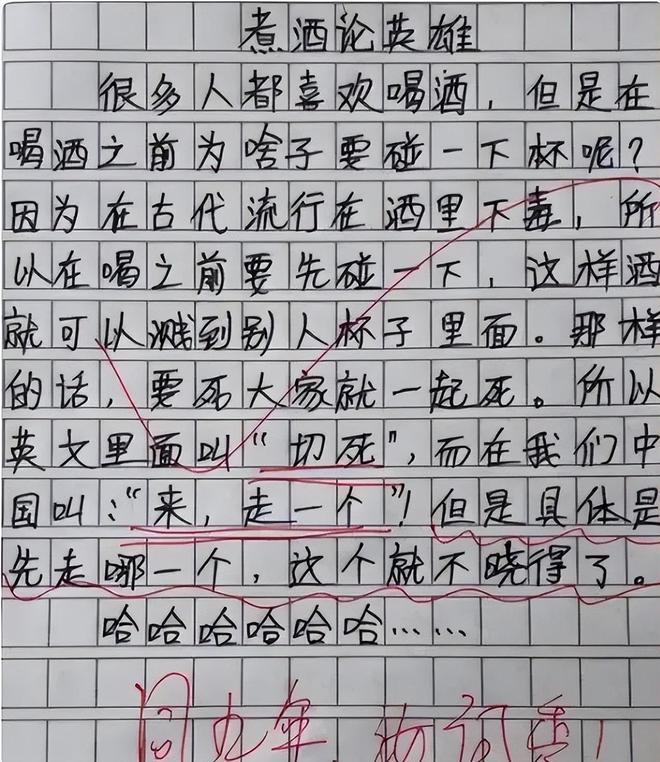 煮酒论英雄
很多人都喜欢喝酒，但是在
喝酒之前为啥子要碰一下杯呢？
因为在古代流行在酒里下毒，所
以在喝之前要先碰一下，这样酒
就可以溅到别人杯子里面。那样
的话，要死大家就一起死。所以
英文里面叫“切死”，而在我们中
国叫：“来，走一个”！但是具体是
先走哪一个，这个就不晓得了。
哈哈哈哈哈哈……